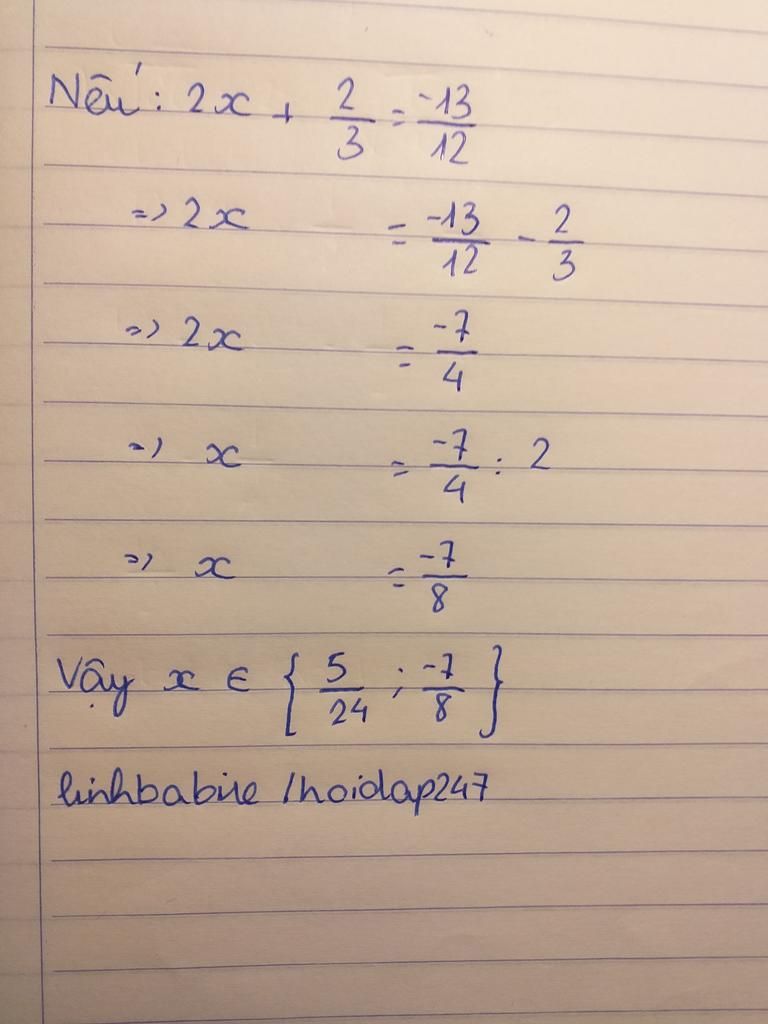 Nếu: 2x + 2/3 = -13/12
=> 2x = -13/12 - 2/3
=> 2x = -7/4
=> x = -7/4 : 2
=> x = -7/8
Vậy x ∈ { 5/24 ; -7/8 }
/hoidap247